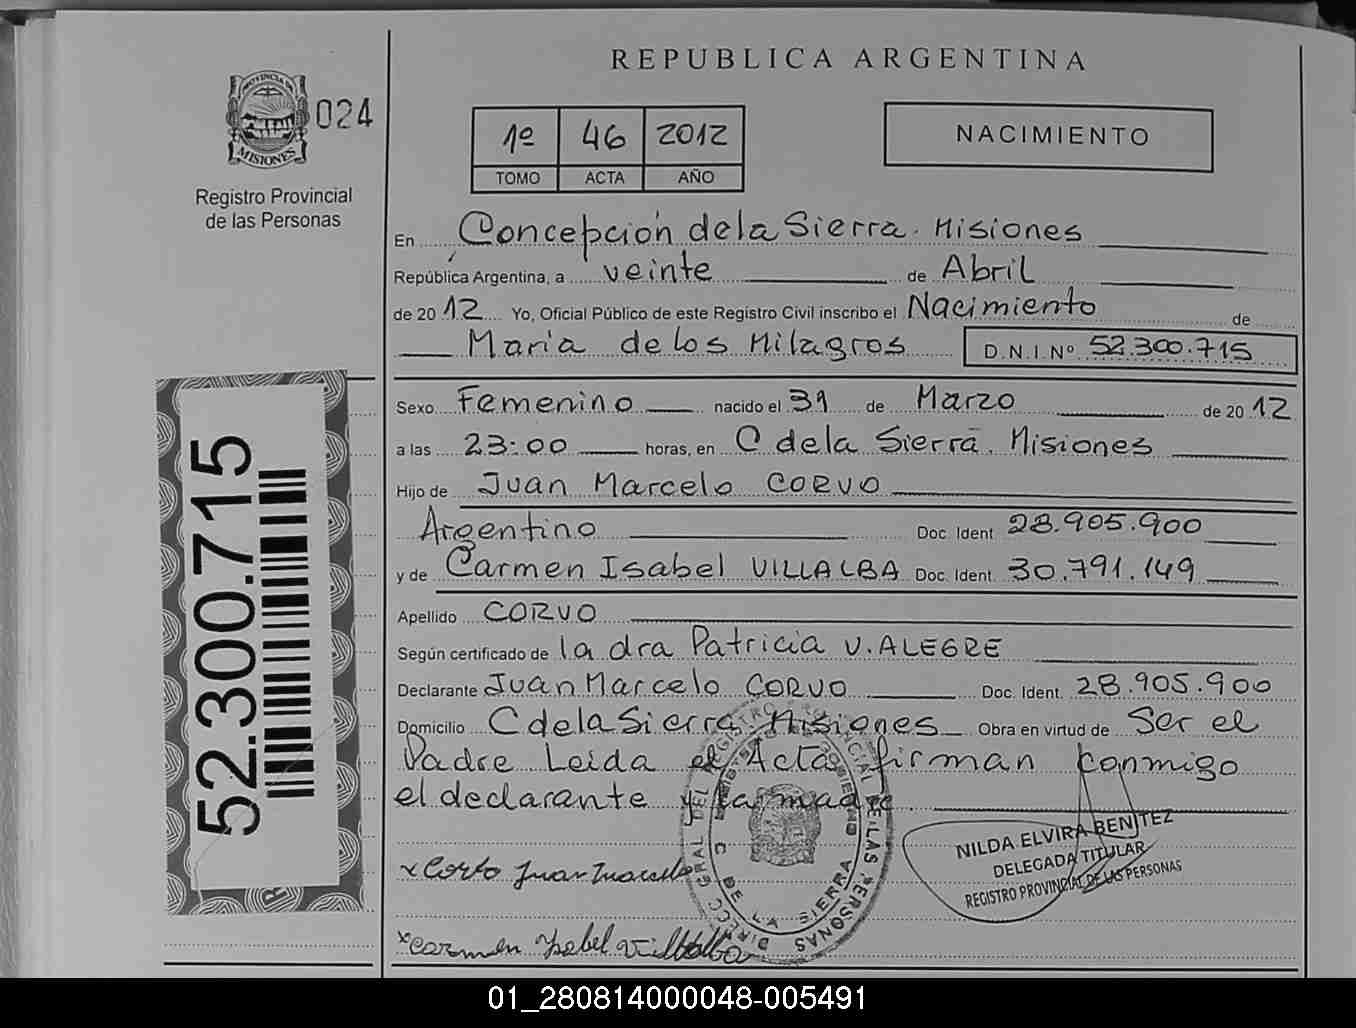 REPUBLICA ARGENTINA
PROVINCIA DE
MISIONES
024
Registro Provincial
de las Personas
1º 46 2012
TOMO ACTA AÑO
NACIMIENTO
En Concepción de la Sierra. Misiones
República Argentina, a veinte de Abril
de 2012 Yo, Oficial Público de este Registro Civil inscribo el Nacimiento de
María de los Milagros D.N.I.Nº 52.300.715
Sexo Femenino nacido el 31 de Marzo de 2012
a las 23:00 horas, en C de la Sierra. Misiones
Hijo de Juan Marcelo CORVO
Argentino Doc. Ident. 28.905.900
y de Carmen Isabel VILLALBA Doc. Ident. 30.791.149
Apellido CORVO
Según certificado de la dra Patricia V. ALEGRE
Declarante Juan Marcelo CORVO Doc. Ident. 28.905.900
Domicilio C de la Sierra. Misiones Obra en virtud de Ser el
Padre Leida el Acta firman conmigo
el declarante y la madre.
x Corvo Juan Marcelo
x Carmen Isabel Villalba
NILDA ELVIRA BENITEZ
DELEGADA TITULAR
REGISTRO PROVINCIAL DE LAS PERSONAS
C DE LA SIERRA
52.300.715
01_280814000048-005491